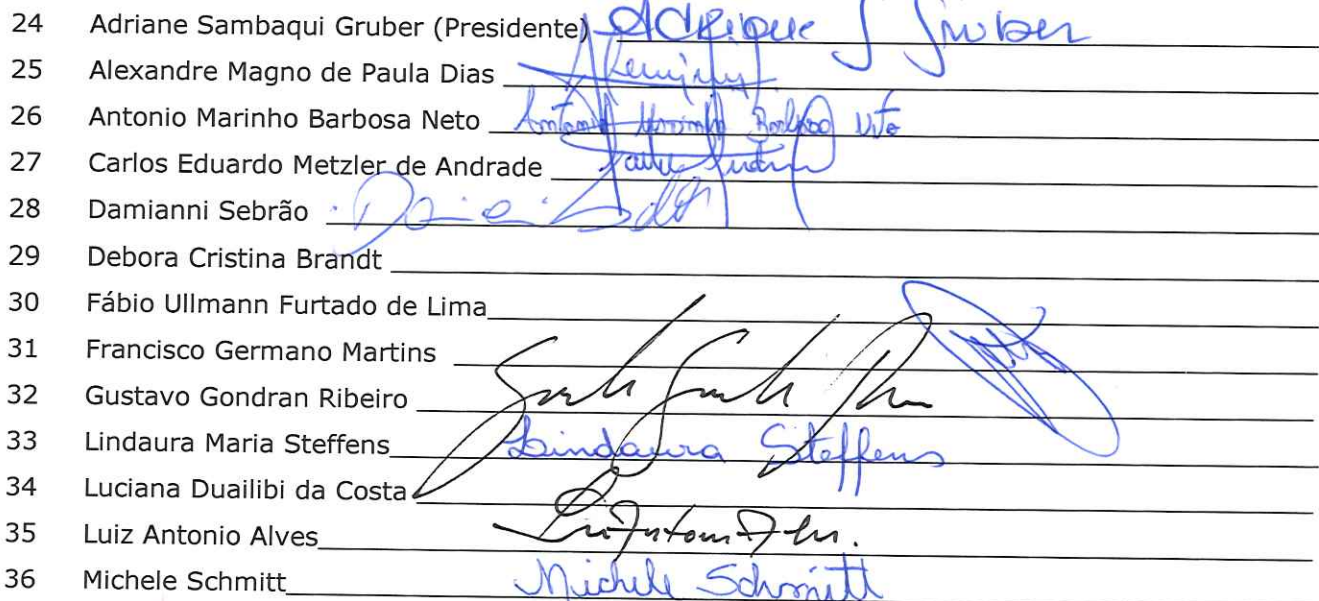 24 Adriane Sambaqui Gruber (Presidente) Adriane S Gruber
25 Alexandre Magno de Paula Dias
26 Antonio Marinho Barbosa Neto Antonio Marinho Barbosa Neto
27 Carlos Eduardo Metzler de Andrade
28 Damianni Sebrão
29 Debora Cristina Brandt
30 Fábio Ullmann Furtado de Lima
31 Francisco Germano Martins
32 Gustavo Gondran Ribeiro
33 Lindaura Maria Steffens Lindaura Steffens
34 Luciana Duailibi da Costa
35 Luiz Antonio Alves
36 Michele Schmitt Michele Schmitt